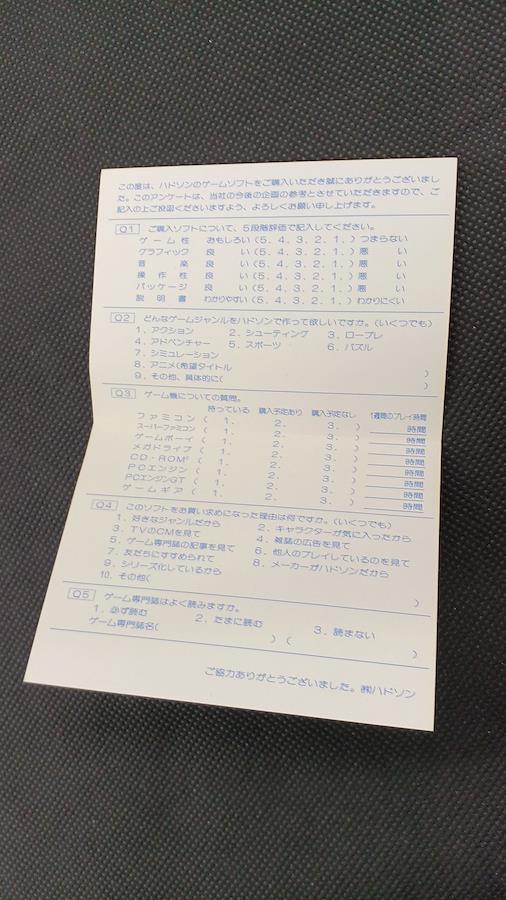 この度は、ハドソンのゲームソフトをご購入いただき誠にありがとうございまし
た。このアンケートは、当社の今後の企画の参考とさせていただきますので、ご
記入の上ご投函くださいますよう、よろしくお願い申し上げます。
Q1 ご購入ソフトについて、5段階評価で記入してください。
ゲーム性 おもしろい(5. 4. 3. 2. 1. )つまらない
グラフィック 良い(5. 4. 3. 2. 1. )悪い
音楽 良い(5. 4. 3. 2. 1. )悪い
操作性 良い(5. 4. 3. 2. 1. )悪い
パッケージ 良い(5. 4. 3. 2. 1. )悪い
説明書 わかりやすい(5. 4. 3. 2. 1. )わかりにくい
Q2 どんなゲームジャンルをハドソンで作って欲しいですか。(いくつでも)
1. アクション 2. シューティング 3. ロープレ
4. アドベンチャー 5. スポーツ 6. パズル
7. シミュレーション
8. アニメ(希望タイトル )
9. その他、具体的に( )
Q3 ゲーム機についての質問。
持っている 購入予定あり 購入予定なし 1週間のプレイ時間
ファミコン( 1. 2. 3. ) 時間
スーパーファミコン( 1. 2. 3. ) 時間
ゲームボーイ( 1. 2. 3. ) 時間
メガドライブ( 1. 2. 3. ) 時間
CD・ROM²( 1. 2. 3. ) 時間
PCエンジン( 1. 2. 3. ) 時間
PCエンジンGT( 1. 2. 3. ) 時間
ゲームギア( 1. 2. 3. ) 時間
Q4 このソフトをお買い求めになった理由は何ですか。(いくつでも)
1. 好きなジャンルだから 2. キャラクターが気に入ったから
3. TVのCMを見て 4. 雑誌の広告を見て
5. ゲーム専門誌の記事を見て 6. 他人のプレイしているのを見て
7. 友だちにすすめられて 8. メーカーがハドソンだから
9. シリーズ化しているから
10. その他( )
Q5 ゲーム専門誌はよく読みますか。
1. 必ず読む 2. たまに読む 3. 読まない
ゲーム専門誌名( ) ( )
ご協力ありがとうございました。㈱ハドソン